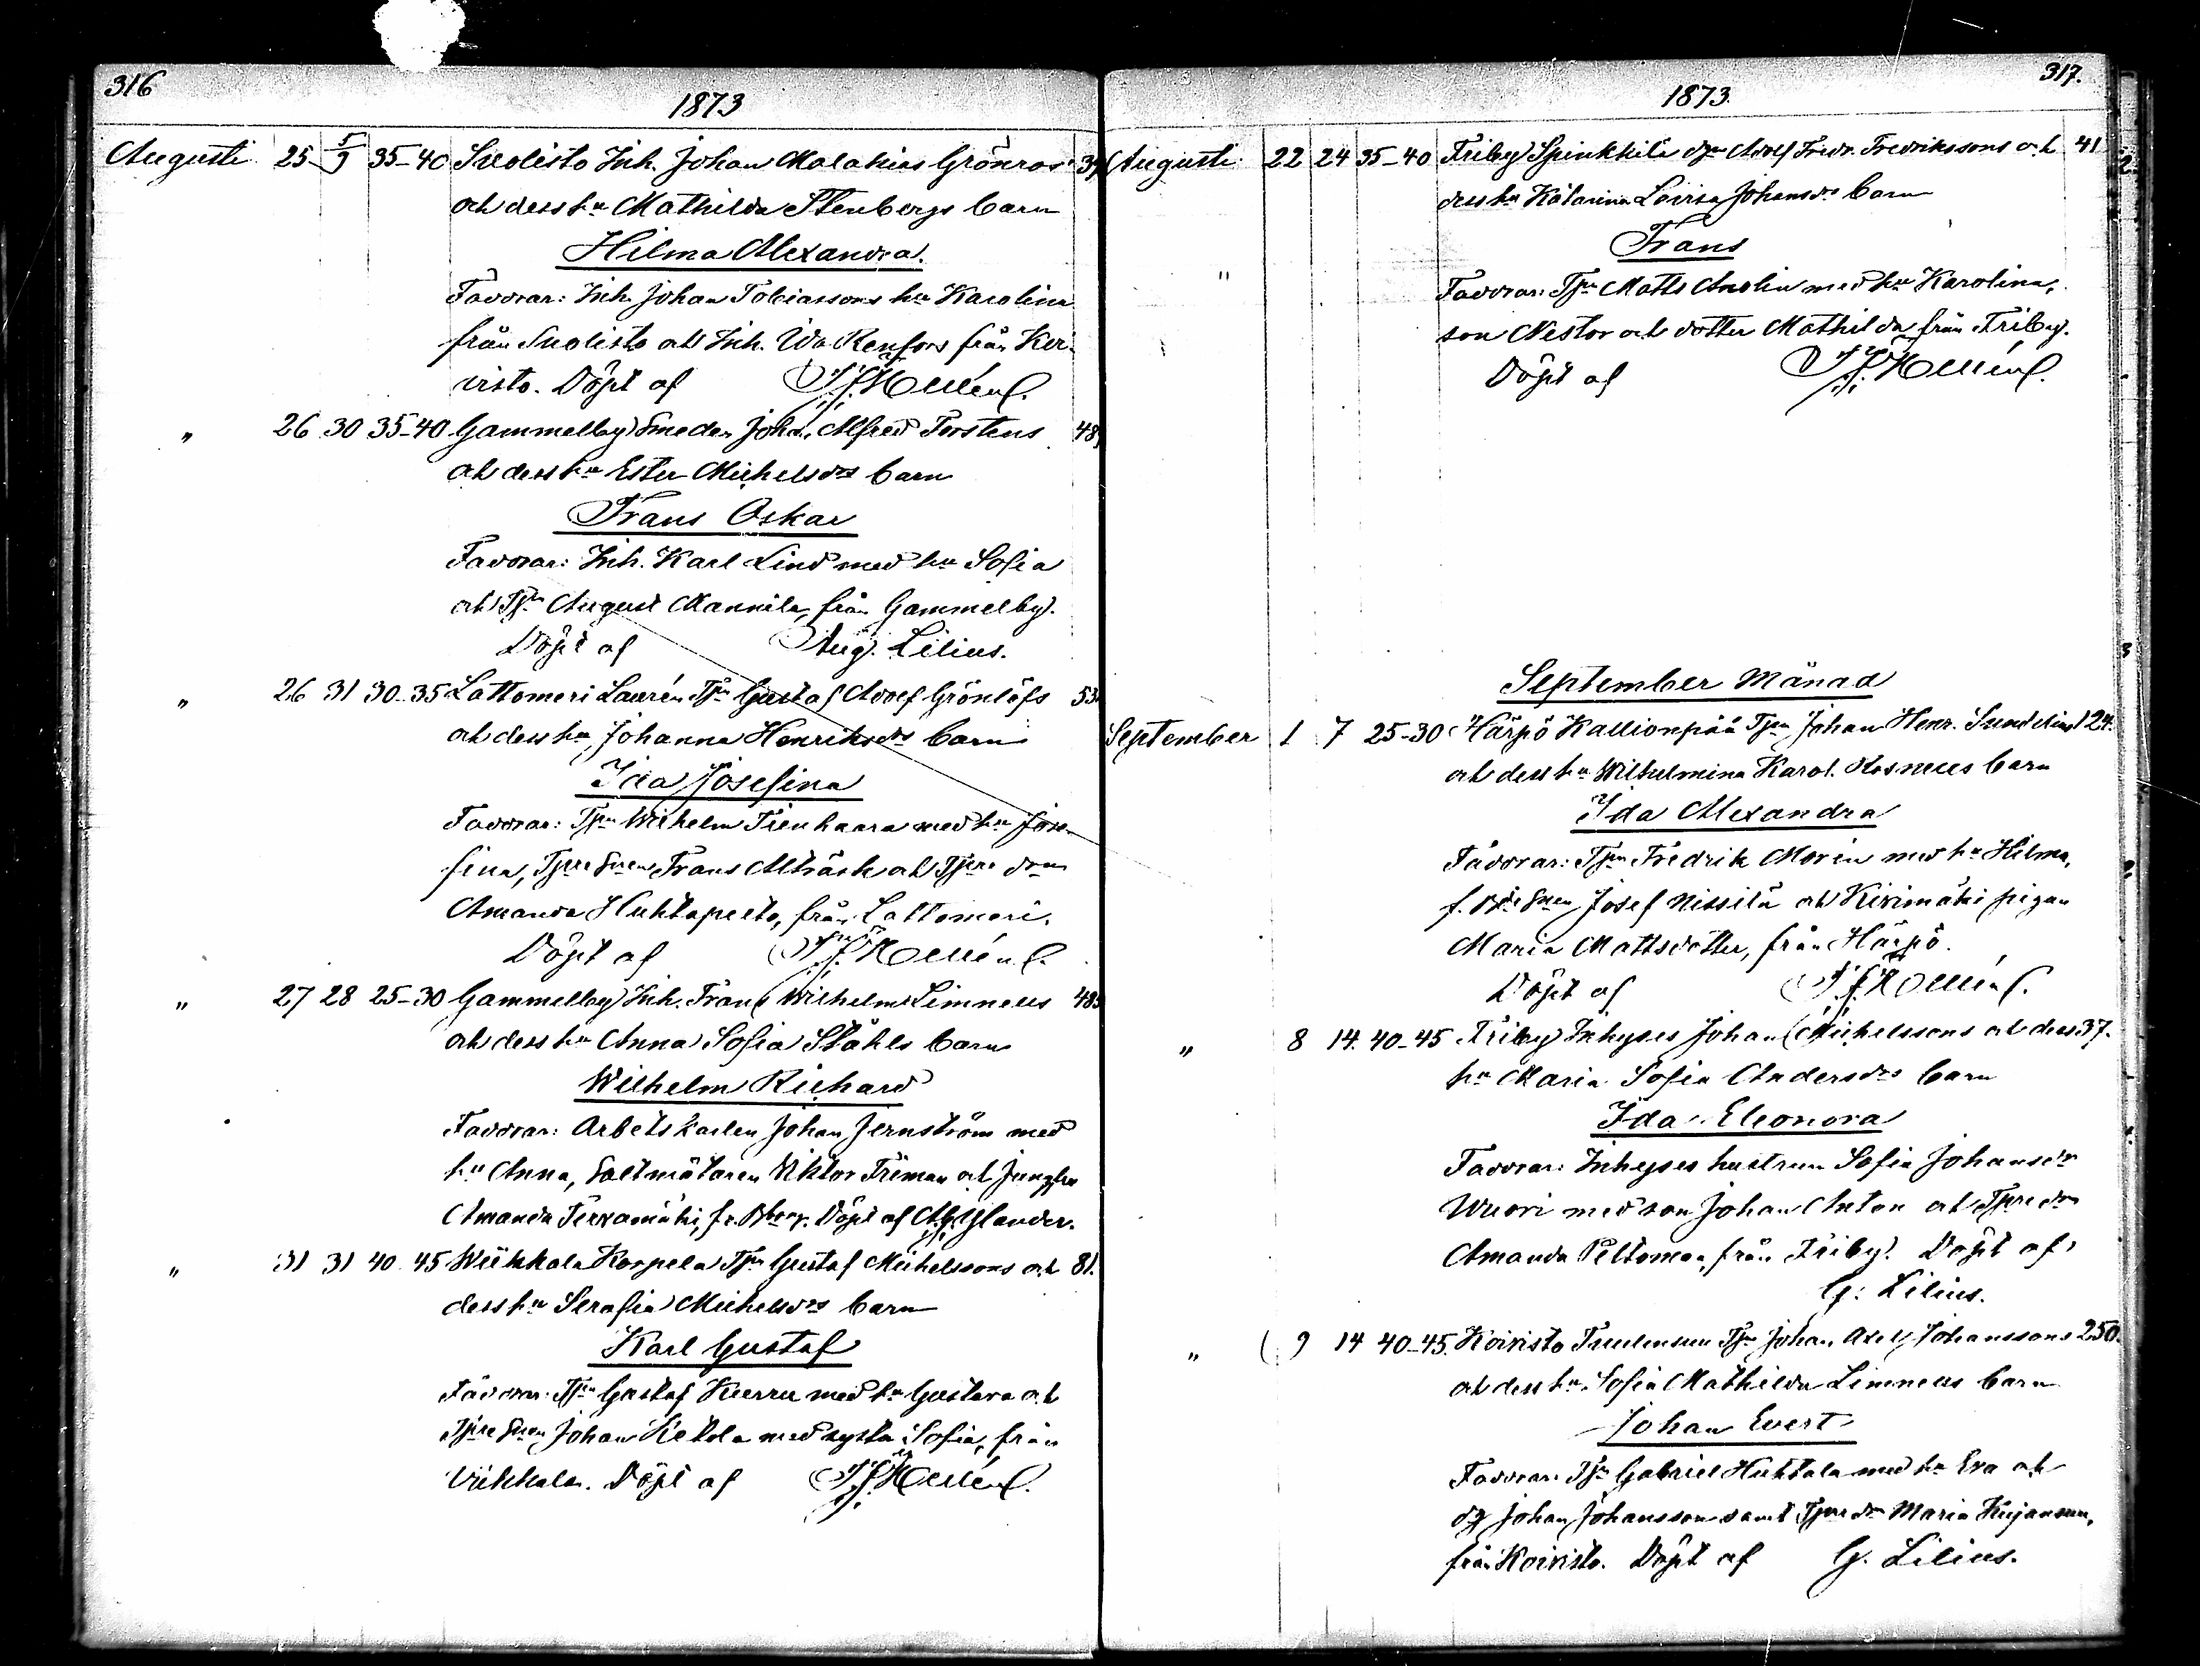 316
1873
Augusti 25 5/9 35-40 Suolisto Inh. Johan Malakias Grönros 39
och dess hu Mathilda Stenbergs barn
Hilma Alexandra.
Faddrar: Inh. Johan Tobiassons hu Karolina
från Suolisto och Inh. Ida Renfors från Koi-
visto. Döpt af
" 26 30 35-40 Gammelby Smeden Joh. Alfred Torstens 48
och dess hu Ester Michelsdrs barn
Frans Oskar
Faddrar: Inh. Karl Lind med hu Sofia
och Tjn August Mannila, från Gammelby.
Döpt af Aug. Lilius.
" 26 31 30-35 Lattomeri Laurén Tjn Gustaf Adolf Grönlöfs 53
och dess hu Johanna Henriksdrs barn
Ida Josefina
Faddrar: Tjn Wilhelm Tienhaara med hu Jose-
fina, Frans Alträsk och
Amanda Huhtapelto, från Lattomeri.
Döpt af
" 27 28 25-30 Gammelby Inh. Frans Wilhelm Limnells 48
och dess hu Anna Sofia Ståhls barn
Wilhelm Richard
Faddrar: Arbetskarlen Johan Jernström med
hu Anna, Saltmätaren Viktor Friman och Jungfru
Amanda Terramäki, fr. Bborg. Döpt af Ylander.
" 31 31 40-45 Wiikkala Korpela Tjn Gustaf Michelssons och 81.
dess hu Serafia Michelsdrs barn
Karl Gustaf
Faddrar: Tjn Gustaf Kuerru med hu Gustava och
Johan Ketola med syster Sofia, från
Viikkala. Döpt af
317.
1873.
Augusti 22 24 35-40 Friby Spinkkilä Adolf Fredr. Fredrikssons och 41
dess hu Katarina Lovisa Johansdrs barn
Frans
" Faddrar: Tjn Matts Anolin med hu Karolina,
son Nestor och dotter Mathilda från Friby.
Döpt af
September Månad
September 1 7 25-30 Härpö Kallionpää Tjn Johan Henr. Sundelins 124.
och dess hu Wilhelmina Karol. Rosnells barn
Ida Alexandra
Faddrar: Tjn Fredrik Morin med hu Hilma,
f. Josef Nissilä och Kivimäki pigan
Maria Mattsdotter, från Härpö.
Döpt af
" 8 14. 40-45 Friby Inhyses Johan Michelssons och dess 37.
hu Maria Sofia Andersdrs barn
Ida Eleonora
Faddrar: Inhyses hustrun Sofia Johansdr
Wuori med son Johan Anton och
Amanda Peltoman, från Friby. Döpt af
G. Lilius.
" 9 14 40-45. Koivisto Tuulensuu Tjn Johan Axel Johanssons 250.
och dess hu Sofia Mathilda Limnells barn
Johan Evert
Faddrar: Tjn Gabriel Huhtala med hu Eva och
Johan Johansson samt Maria Kujansuu,
från Koivisto. Döpt af G. Lilius.